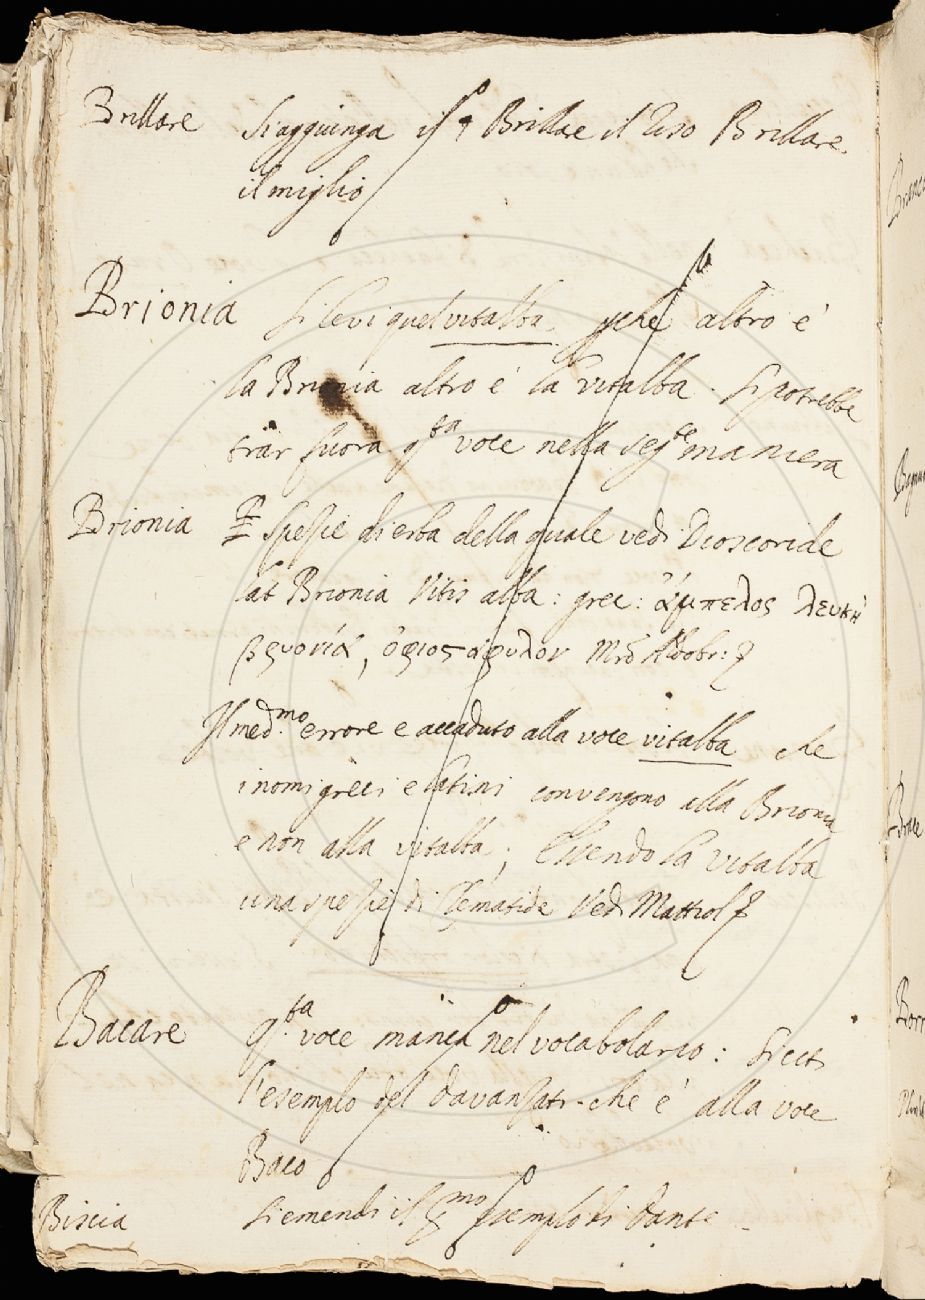 Brillare Si aggiunga il § Brillare il Riso Brillare
il miglio
Brionia Si levi quel vitalba pche altro è
la Brionia altro è la vitalba. Si potrebbe
trar fuora q.ta voce nella seg.te maniera
Brionia Spezie di erba della quale vedi Dioscoride
lat Brionia Vitis alba: grec: ἄμπελος λευκὴ
βρυονία, ὀφιοσταφυλον
Il med.mo errore e accaduto alla voce vitalba che
i nomi greci e latini convengono alla Brionia
e non alla vitalba; Essendo la vitalba
una spezie di Clematide Vedi Mattiol
Bacare q.ta voce manca nel vocabolario: Si citi
l'esemplo del Davanzati che è alla voce
Baco
Biscia Si emendi il esemplo di Dante